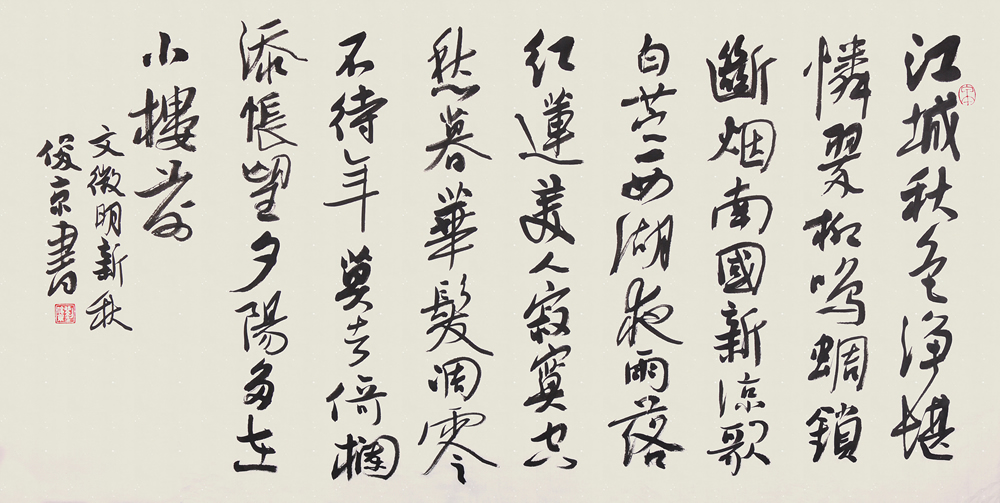 江城秋色净堪
憐翠柳鸣蜩鎖
斷烟南國新涼歌
白苎西湖夜雨落
红蓮美人寂寞空
愁暮華髮凋零
不待年莫去倚欄
添悵望夕陽多在
小樓前
文徵明新秋
俊京書